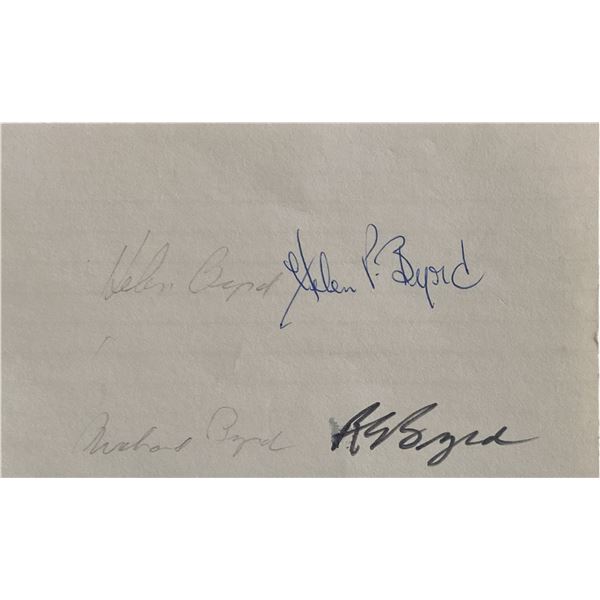 Helen Byrd Helen P. Byrd
Richard Byrd R E Byrd